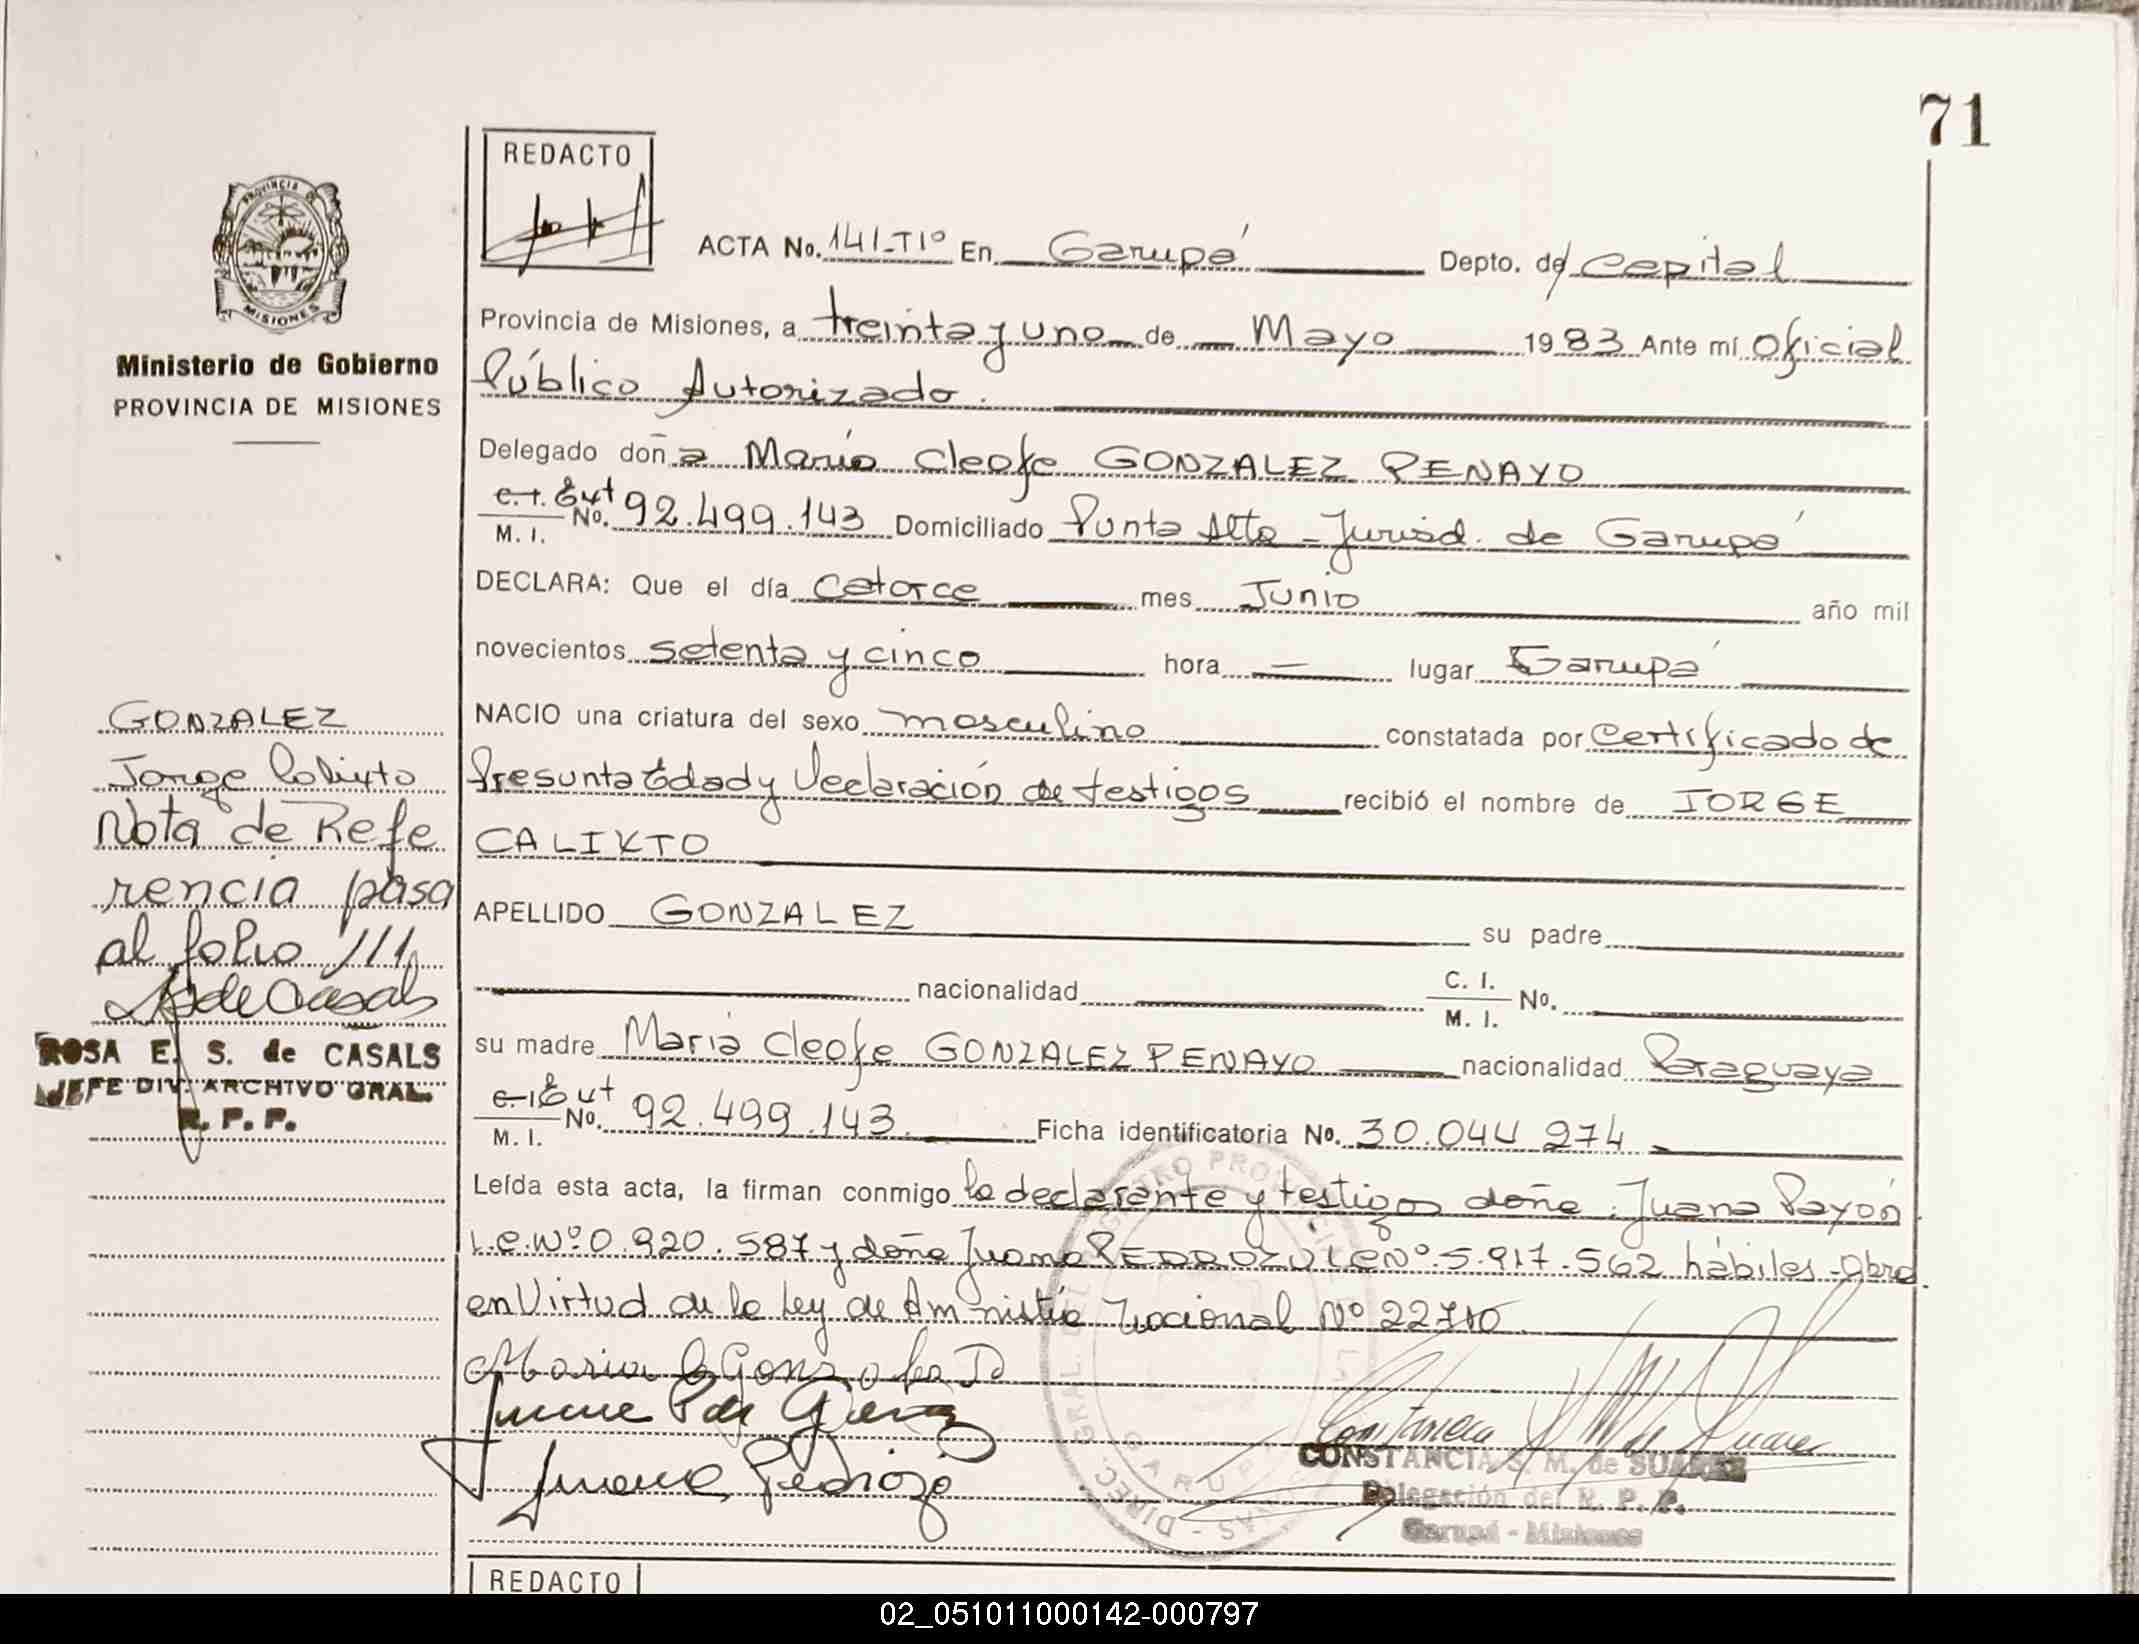 71
REDACTO
PROVINCIA DE
MISIONES
Ministerio de Gobierno
PROVINCIA DE MISIONES
ACTA No. 141-T1º En Garupá Depto. de Capital
Provincia de Misiones, a treinta y uno de Mayo 1983 Ante mí Oficial
Público Autorizado.
Delegado doña María Cleofe GONZALEZ PENAYO
C.I. Ext
M. I. No. 92.499.143 Domiciliado Punta Alta - Jurisd. de Garupá
DECLARA: Que el día Catorce mes Junio año mil
novecientos setenta y cinco hora — lugar Garupá
NACIO una criatura del sexo masculino constatada por Certificado de
Presunta Edad y Declaración de testigos recibió el nombre de JORGE
CALIXTO
APELLIDO GONZALEZ su padre
nacionalidad C. I. M. I. No.
su madre María Cleofe GONZALEZ PENAYO nacionalidad Paraguaya
C.I. Ext
M. I. No. 92.499.143. Ficha identificatoria No. 30.044 274
Leída esta acta, la firman conmigo la declarante y testigos doña: Juana Payón
L.C.Nº 0.920.587 y doña Juana PEDROZO LCNº 5.917.562 hábiles - Obra
en Virtud de la Ley de Amnistía Nacional Nº 22710
GONZALEZ
Jorge Calixto
Nota de Refe
rencia pasa
al folio 111
S de Casals
ROSA E. S. de CASALS
JEFE DIV. ARCHIVO GRAL.
R. P. P.
Juana Pedrozo
CONSTANCIA S. M. de SUAREZ
Delegación del R. P. P.
Garupá - Misiones
REDACTO
02_051011000142-000797